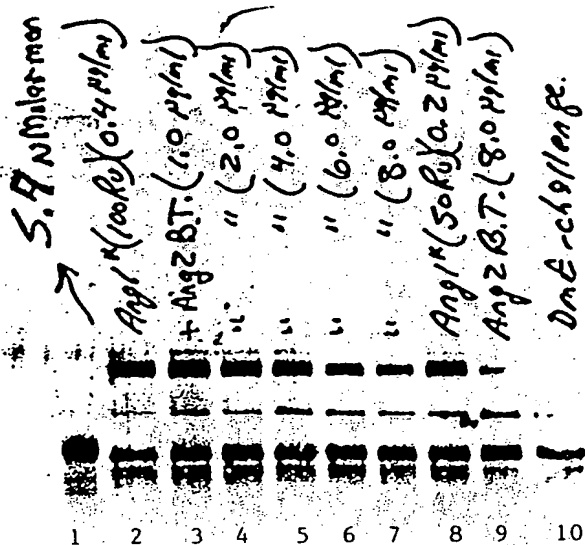 5.9 nMolar mon
Ang1* (100 RU) (0.4 µg/ml)
+ Ang2 B.T. (1.0 µg/ml)
" " (2.0 µg/ml)
" " (4.0 µg/ml)
" " (6.0 µg/ml)
" " (8.0 µg/ml)
Ang1* (50 RU) (0.2 µg/ml)
Ang2 B.T. (8.0 µg/ml)
DME-challenge.
1 2 3 4 5 6 7 8 9 10